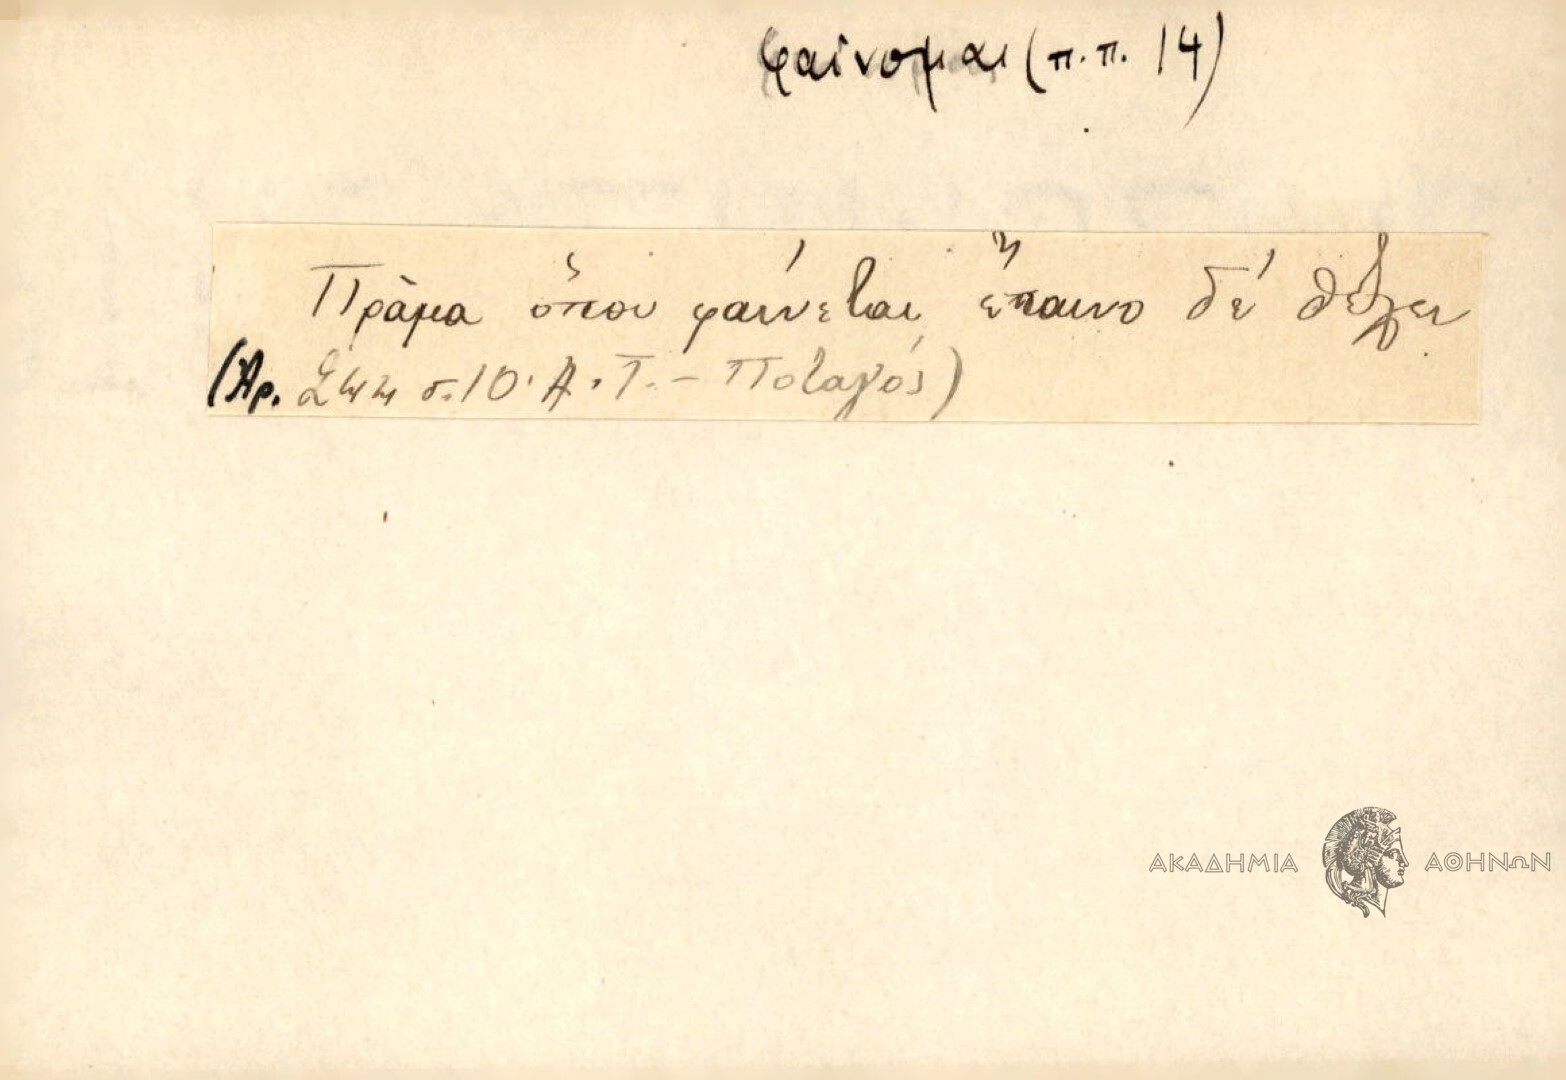 φαίνομαι (π.π. 14)
Πρᾶμα ὅπου φαίνεται ἔπαινο δέ θέλει
(Ἀρ. 244 σ. 10. Α. Τ. - Ποταμός)
ΑΚΑΔΗΜΙΑ ΑΘΗΝΩΝ